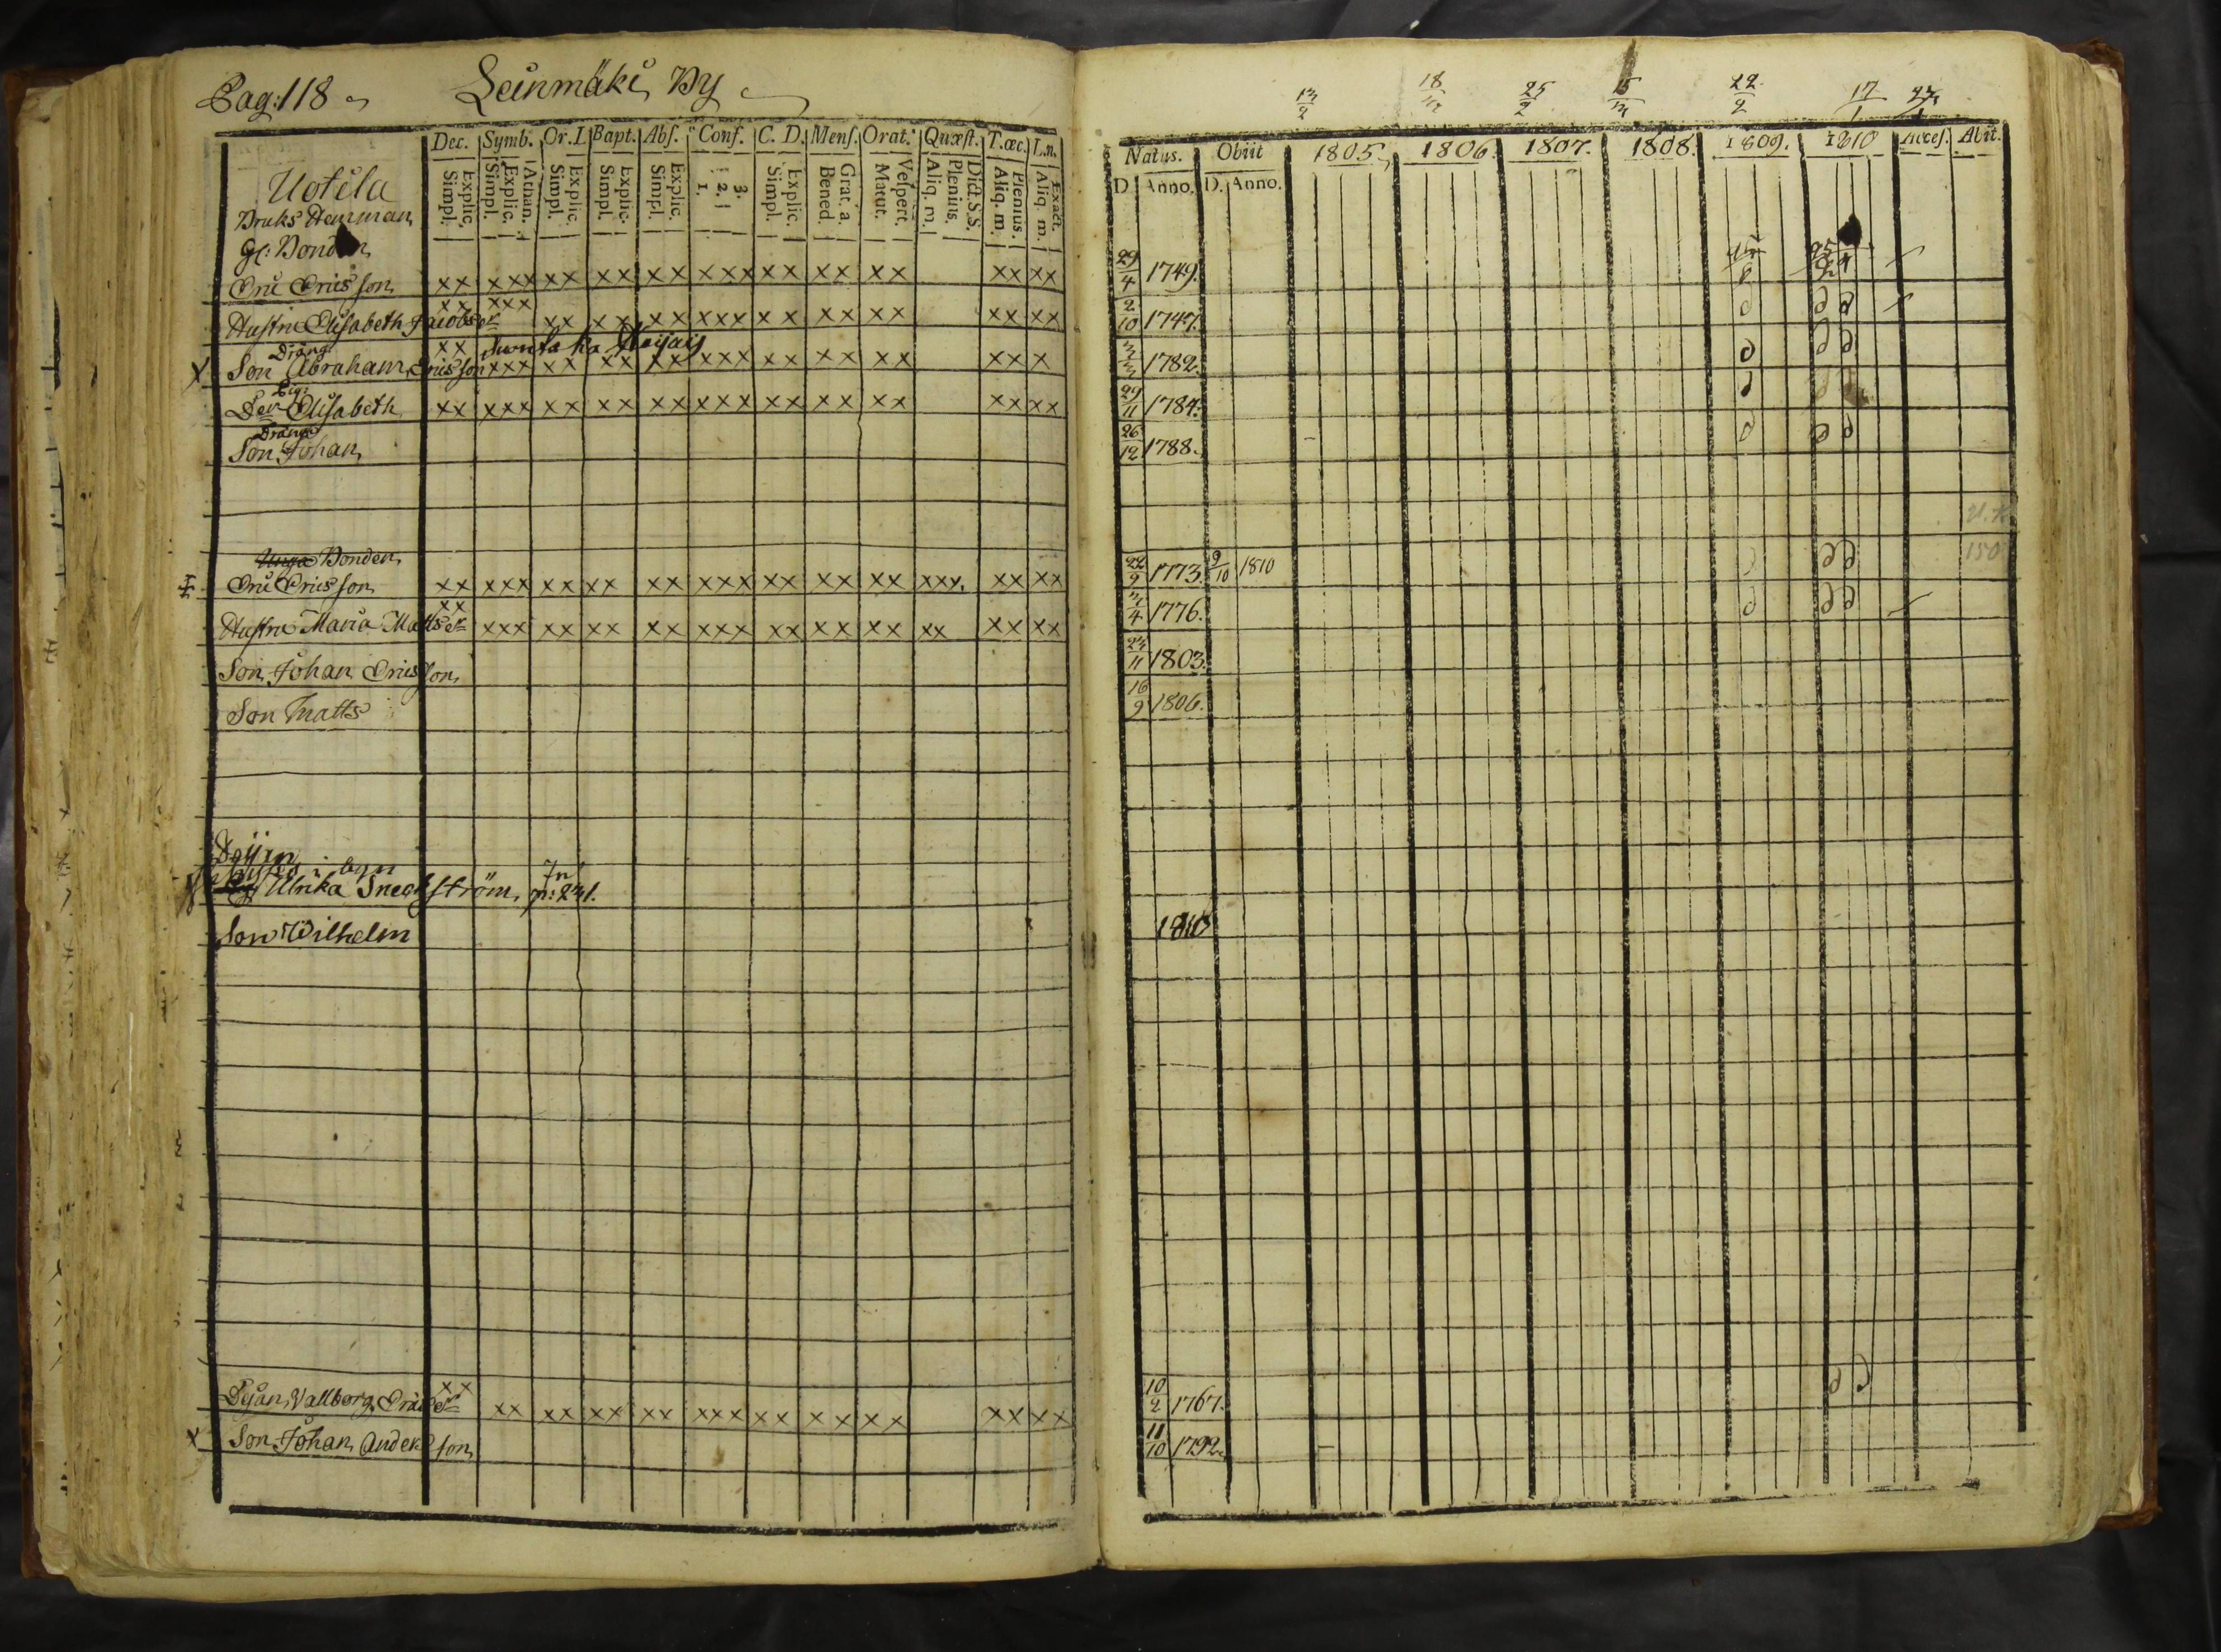 Pag: 118
Leinmäki By
Dec. Symb. Or. I. Bapt. Abſ. Conf. C. D. Menſ. Orat. Quæſt. T. œc. L.n.
Explic. Simpl. Athan. Explic. Simpl. Explic. Simpl. Explic. Simpl. Explic. Simpl. 3. 2. 1. Explic. Simpl. Grat. a. Bened. Veſpert. Matut. Dict. S.S. Plenius. Aliq. m. Plenius. Aliq. m. Exact. Aliq. m.
Uotila
Bruks Hemman
gl: Bonden
Eric Ericsson xx xxx xx xx xx xxx xx xx xx xx xx
Hustru Elisabeth Jacobsdr xx xxx xx xx xx xxx xx xx xx xx xx
Dräng
Son Abraham Ericsson xx xxx xx xx xx xxx xx xx xx xx x
Pig:
Dr Elisabeth xx xxx xx xx xx xxx xx xx xx xx xx
Dräng
Son Johan
Unga Bonden
Eric Ericsson xx xxx xx xx xx xxx xx xx xx xxx. xx xx
Hustru Maria Mattsdr xx xxx xx xx xx xxx xx xx xx xx xx xx
Son Johan Ericsson
Son Matts
i byn
Ulrika Sneckström, p: 231.
Son Wilhelm
Wallborg Ericsdr xx xx xx xx xx xxx xx xx xx xx xx
Son Johan Andersson
13/2 18/3 25/2 15/3 22/2 17/1 23/1
Natus. Obiit 1805 1806. 1807. 1808. 1809. 1810 Acceſ. Abit.
D. Anno. D. Anno.
29/4 1749.
2/10 1747.
3/3 1782.
29/11 1784.
26/12 1788.
22/9 1773. 9/10 1810
3/4 1776.
23/11 1803.
16/9 1806.
1810
10/2 1767.
11/10 1792.